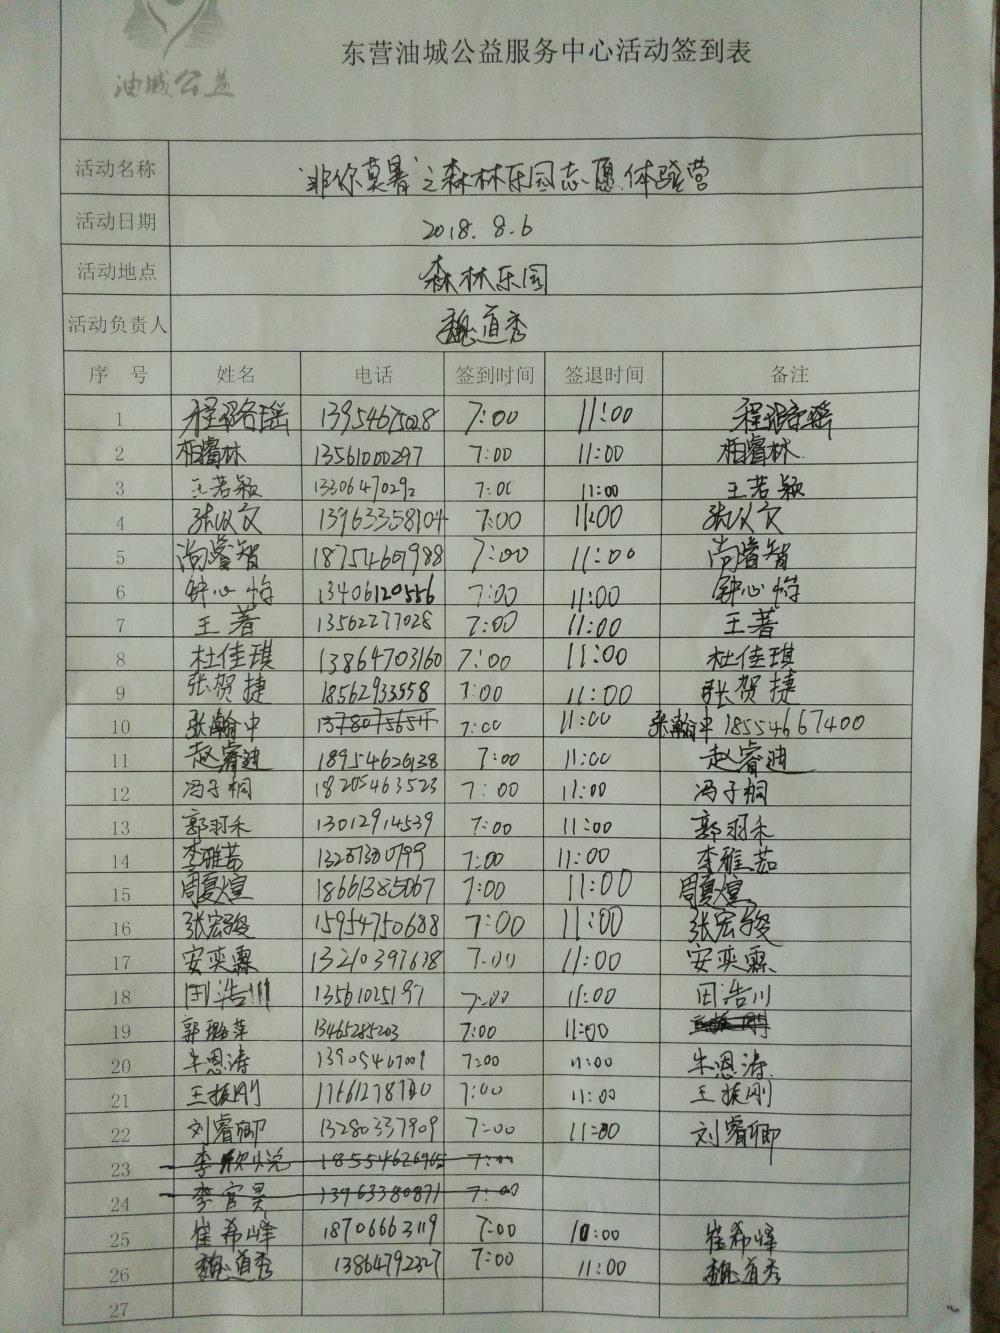 油城公益
东营油城公益服务中心活动签到表
活动名称 "非你莫暑"之森林乐园志愿体验营
活动日期 2018.8.6
活动地点 森林乐园
活动负责人 魏道秀
序号 姓名 电话 签到时间 签退时间 备注
1 13954675028 7:00 11:00
2 柏睿林 13561000297 7:00 11:00 柏睿林
3 王若颖 13306470292 7:00 11:00 王若颖
4 张以文 13963358104 7:00 11:00 张以文
5 尚睿智 18754601988 7:00 11:00 尚睿智
6 钟心怡 13406120556 7:00 11:00 钟心怡
7 王著 13562277028 7:00 11:00 王著
8 杜佳琪 13864703160 7:00 11:00 杜佳琪
9 张贺捷 18562933558 7:00 11:00 张贺捷
10 张瀚中 7:00 11:00 张瀚中 18554667400
11 赵睿迪 18954626138 7:00 11:00 赵睿迪
12 冯子桐 18205463523 7:00 11:00 冯子桐
13 郭羽禾 13012914539 7:00 11:00 郭羽禾
14 李雅茹 7:00 11:00 李雅茹
15 周夏煊 18661385067 7:00 11:00 周夏煊
16 张宏骏 15954750688 7:00 11:00 张宏骏
17 安奕霖 13210397678 7:00 11:00 安奕霖
18 田浩川 13561025197 7:00 11:00 田浩川
19 郭璐萍 13465285203 7:00 11:00
20 牛恩涛 13905467001 7:00 11:00 牛恩涛
21 王振刚 7:00 11:00 王振刚
22 刘睿卿 13280337909 7:00 11:00 刘睿卿
23 18554626965 7:00
24 李官昊 13963380871 7:00
25 崔希峰 18706663119 7:00 10:00 崔希峰
26 魏道秀 13864792327 7:00 11:00 魏道秀
27